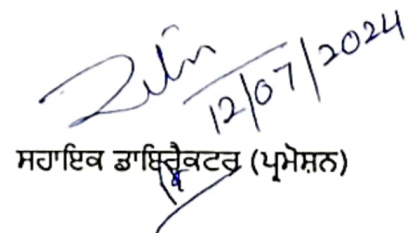 12/07/2024
ਸਹਾਇਕ ਡਾਇਰੈਕਟਰ (ਪ੍ਰਮੋਸ਼ਨ)